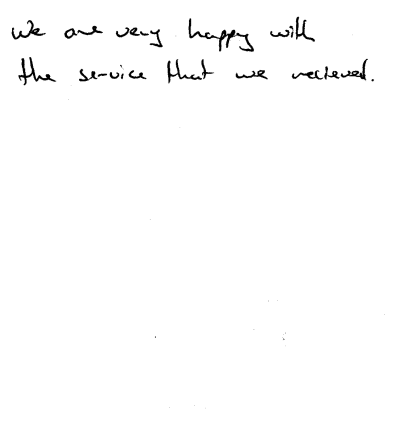 We are very happy with
the service that we recieved.